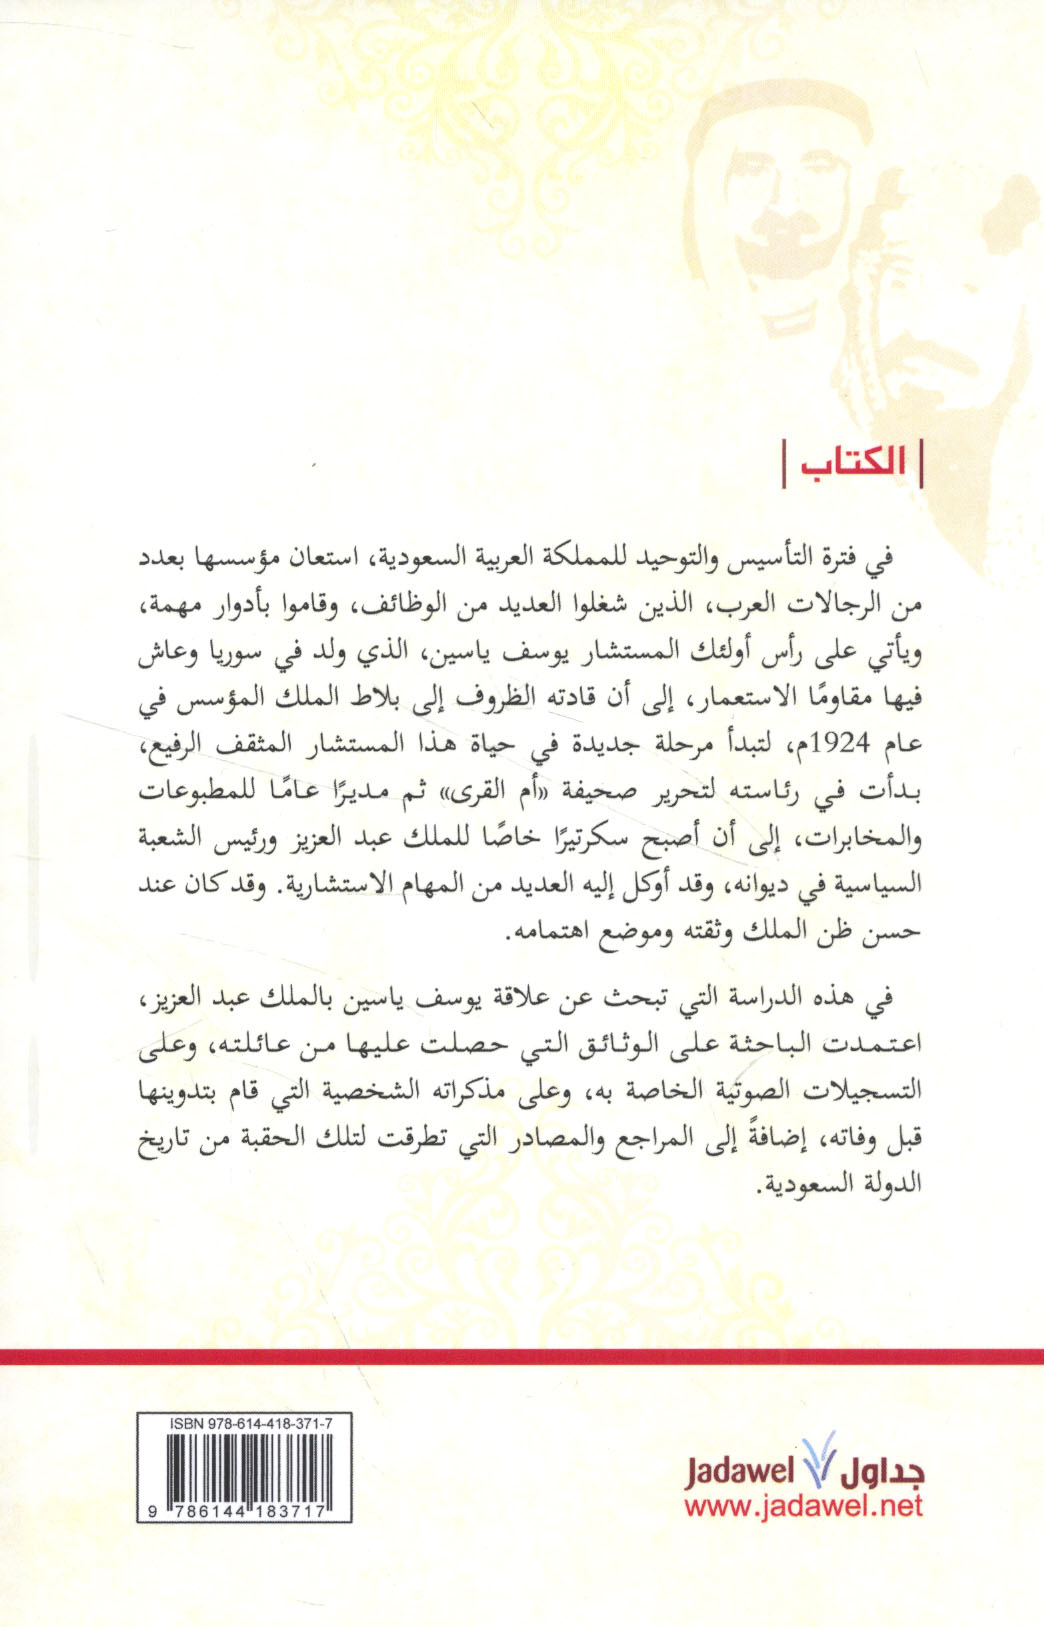 | الكتاب |
في فترة التأسيس والتوحيد للمملكة العربية السعودية، استعان مؤسسها بعدد
من الرجالات العرب، الذين شغلوا العديد من الوظائف، وقاموا بأدوار مهمة،
ويأتي على رأس أولئك المستشار يوسف ياسين، الذي ولد في سوريا وعاش
فيها مقاومًا الاستعمار، إلى أن قادته الظروف إلى بلاط الملك المؤسس في
عام 1924م، لتبدأ مرحلة جديدة في حياة هذا المستشار المثقف الرفيع،
بدأت في رئاسته لتحرير صحيفة «أم القرى» ثم مديرًا عامًا للمطبوعات
والمخابرات، إلى أن أصبح سكرتيرًا خاصًا للملك عبد العزيز ورئيس الشعبة
السياسية في ديوانه، وقد أوكل إليه العديد من المهام الاستشارية. وقد كان عند
حسن ظن الملك وثقته وموضع اهتمامه.
في هذه الدراسة التي تبحث عن علاقة يوسف ياسين بالملك عبد العزيز،
اعتمدت الباحثة على الوثائق التي حصلت عليها من عائلته، وعلى
التسجيلات الصوتية الخاصة به، وعلى مذكراته الشخصية التي قام بتدوينها
قبل وفاته، إضافةً إلى المراجع والمصادر التي تطرقت لتلك الحقبة من تاريخ
الدولة السعودية.
ISBN 978-614-418-371-7
9 786144 183717
Jadawel جداول
www.jadawel.net